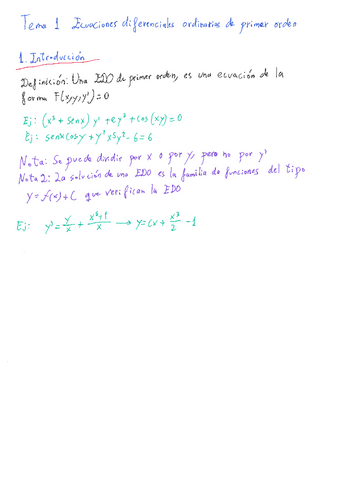 Tema 1 Ecuaciones diferenciales ordinarias de primer orden
1. Introducción
Definición: Una EDO de primer orden, es una ecuación de la
forma F(x,y,y')=0
Ej: (x³ + senx) y' + e y³ + cos(xy) = 0
Ej: senxcosy + y' x⁵y² - 6 = 6
Nota: Se puede dividir por x o por y, pero no por y'
Nota 2: La solución de una EDO es la familia de funciones del tipo
y = f(x) + C que verifican la EDO
Ej: y' = y/x + (x³+1)/x → y = Cx + x³/2 - 1